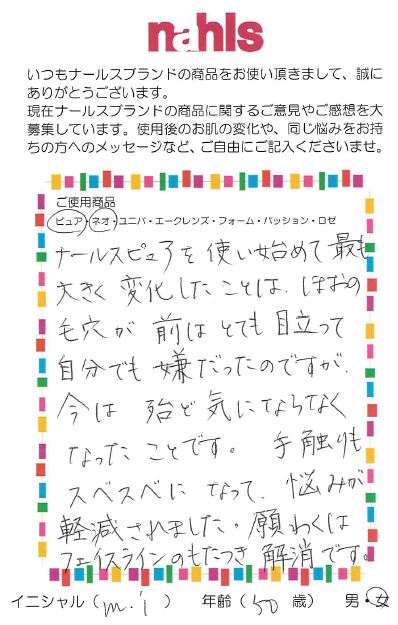 nahls
いつもナールスブランドの商品をお使い頂きまして、誠に
ありがとうございます。
現在ナールスブランドの商品に関するご意見やご感想を大
募集しています。使用後のお肌の変化や、同じ悩みをお持
ちの方へのメッセージなど、ご自由にご記入くださいませ。
ご使用商品
ピュア・ネオ・ユニバ・エークレンズ・フォーム・パッション・ロゼ
ナールスピュアを使い始めて最も
大きく変化したことは、ほおの
毛穴が前はとても目立って
自分でも嫌だったのですが、
今は殆ど気にならなく
なったことです。手触りも
スベスベになって、悩みが
軽減されました。願わくは
フェイスラインのもたつき解消です。
イニシャル(m.i) 年齢(50歳) 男・女